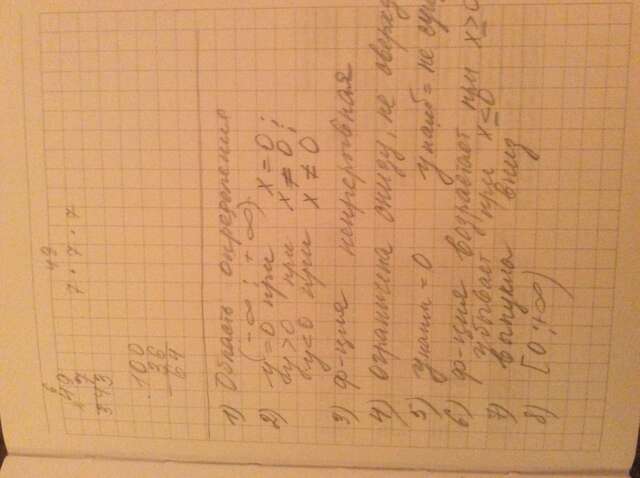 6
49
7
343
49
7 · 7 · 7
100
36
64
1) Область определения
(-∞ ; +∞)
2) y=0 при x=0;
y>0 при x≠0;
y<0 при x≠0
3) ф-ция непрерывная
4) ограничена снизу, не сверху
5) yнаим = 0 yнаиб = не сущ
6) ф-ция возрастает при x≥0
убывает при x≤0
7) выпукла вниз
8) [0;+∞)